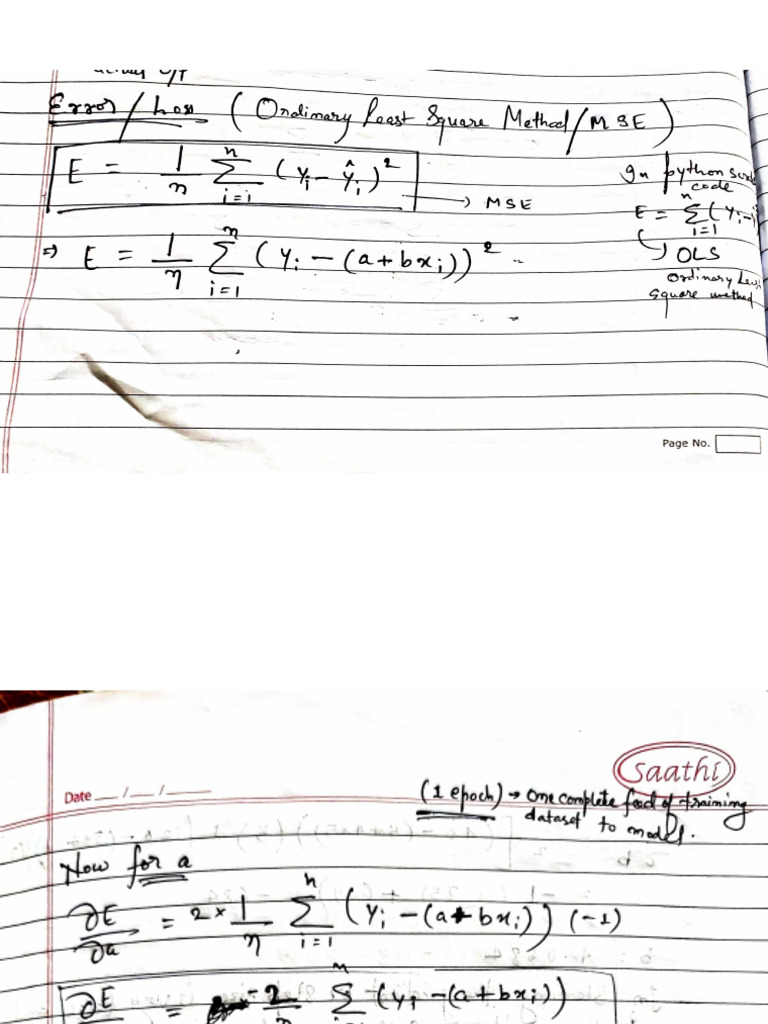 Error / Loss (Ordinary Least Square Method/MSE)
E = 1/n Σ_{i=i}^{n} (yᵢ - ŷᵢ)² → MSE
In python
code
E = Σ_{i=1}^{n} (yᵢ -
OLS
Ordinary
square method
⇒ E = 1/n Σ_{i=1}^{n} (yᵢ - (a + bxᵢ))²
Page No.
Saathi
Date __/__/__
(1 epoch) → One complete feed of training
dataset to model.
Now for a
∂E/∂a = 2 × 1/n Σ_{i=1}^{n} (yᵢ - (a + bxᵢ)) (-1)
∂E = -2/n Σ (yᵢ - (a + bxᵢ))